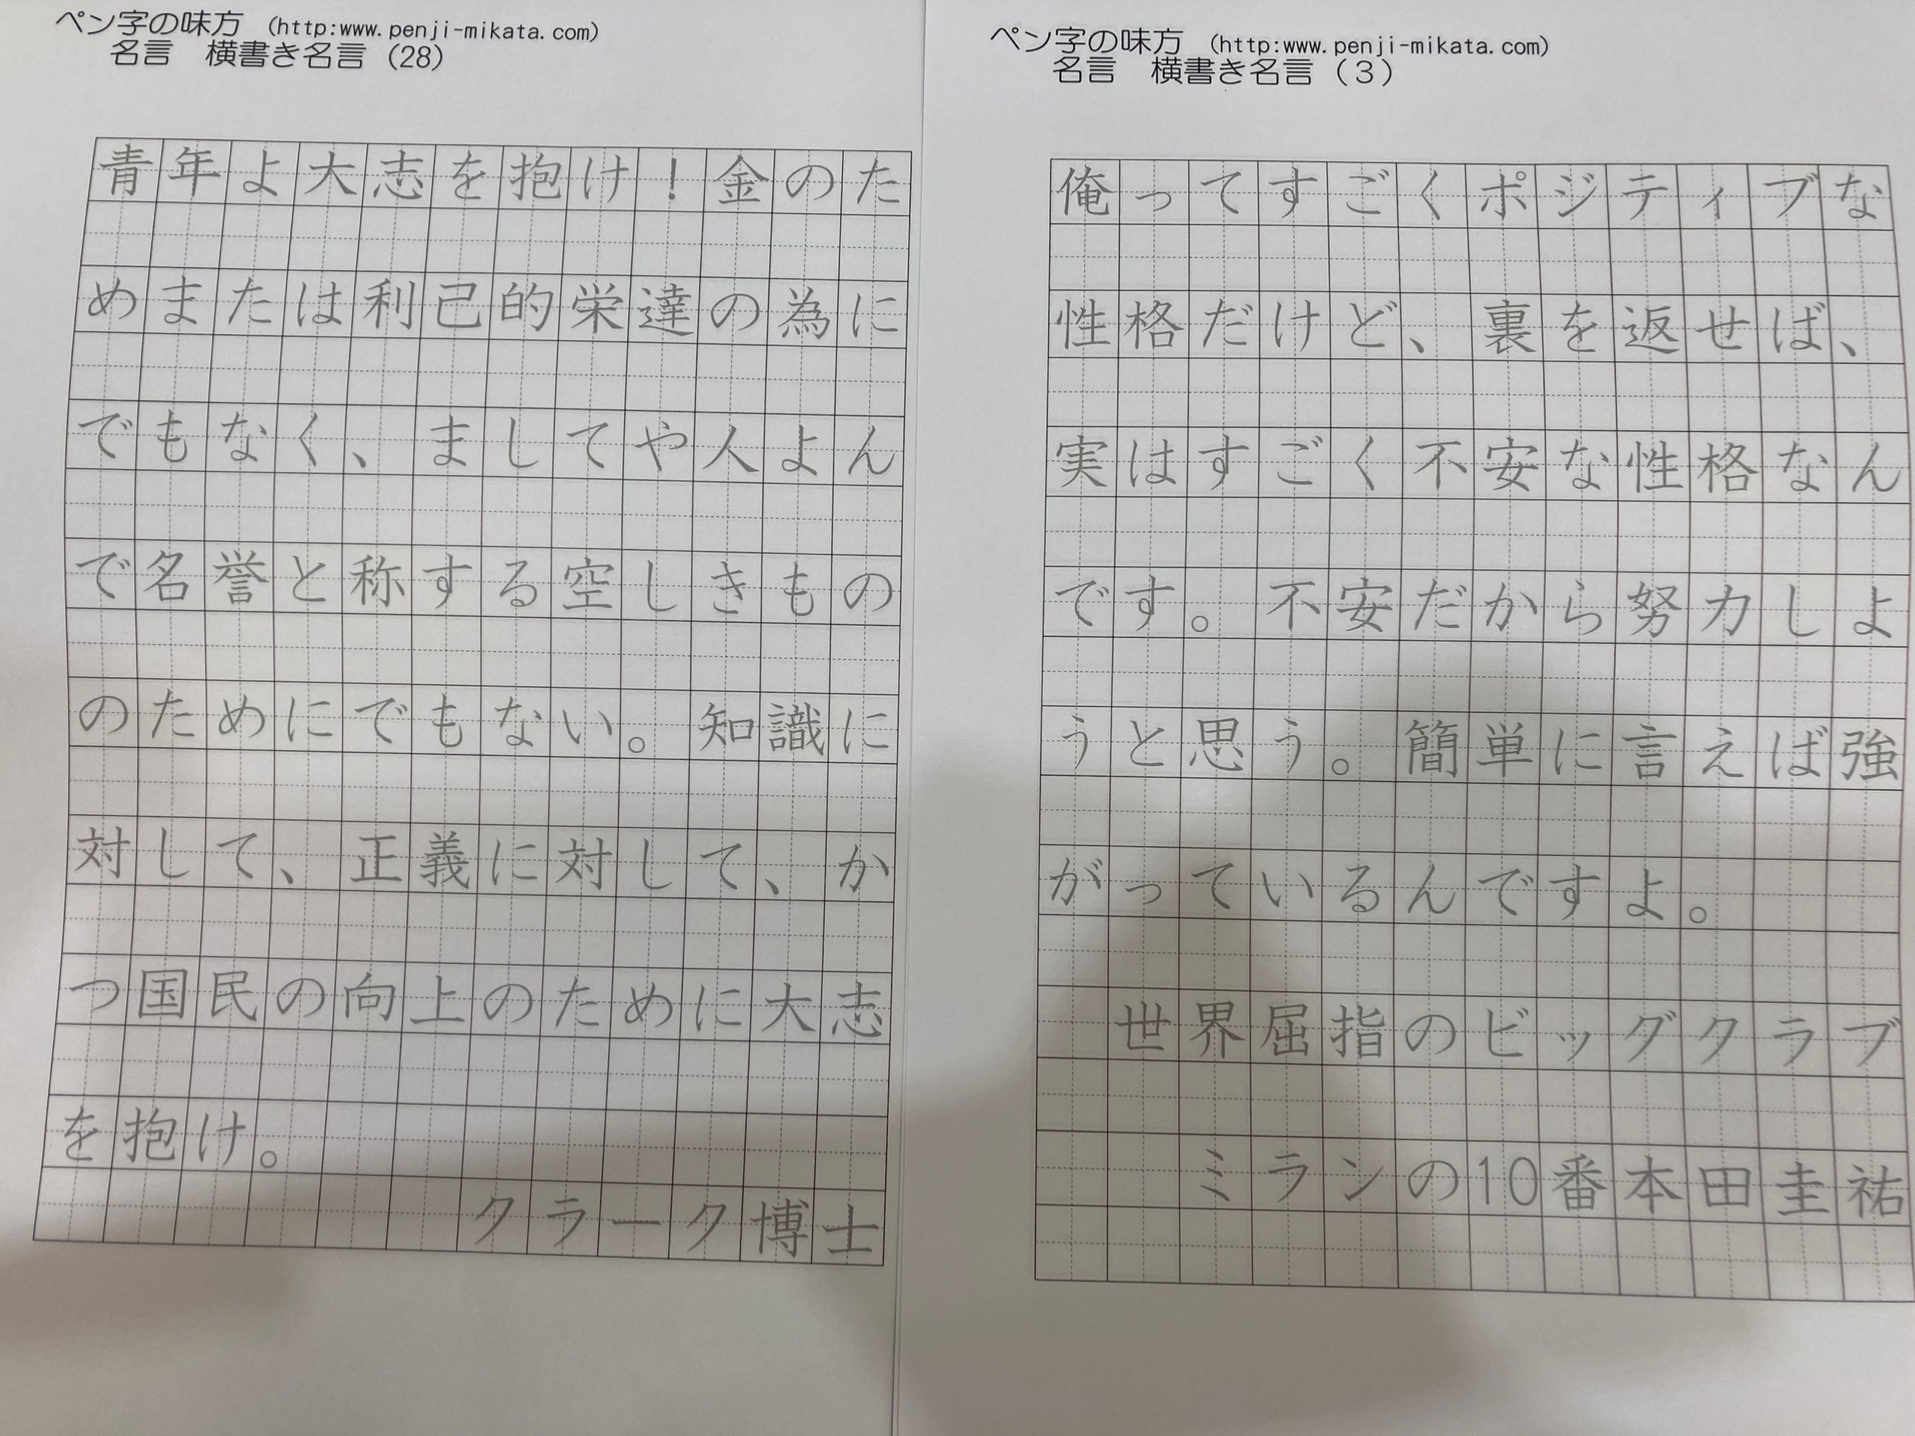 ペン字の味方 (http:www.penji-mikata.com)
名言 横書き名言 (28)
青年よ大志を抱け!金のた
めまたは利己的栄達の為に
でもなく、ましてや人よん
で名誉と称する空しきもの
のためにでもない。知識に
対して、正義に対して、か
つ国民の向上のために大志
を抱け。
クラーク博士
ペン字の味方 (http:www.penji-mikata.com)
名言 横書き名言 (3)
俺ってすごくポジティブな
性格だけど、裏を返せば、
実はすごく不安な性格なん
です。不安だから努力しよ
うと思う。簡単に言えば強
がっているんですよ。
世界屈指のビッグクラブ
ミランの10番本田圭祐